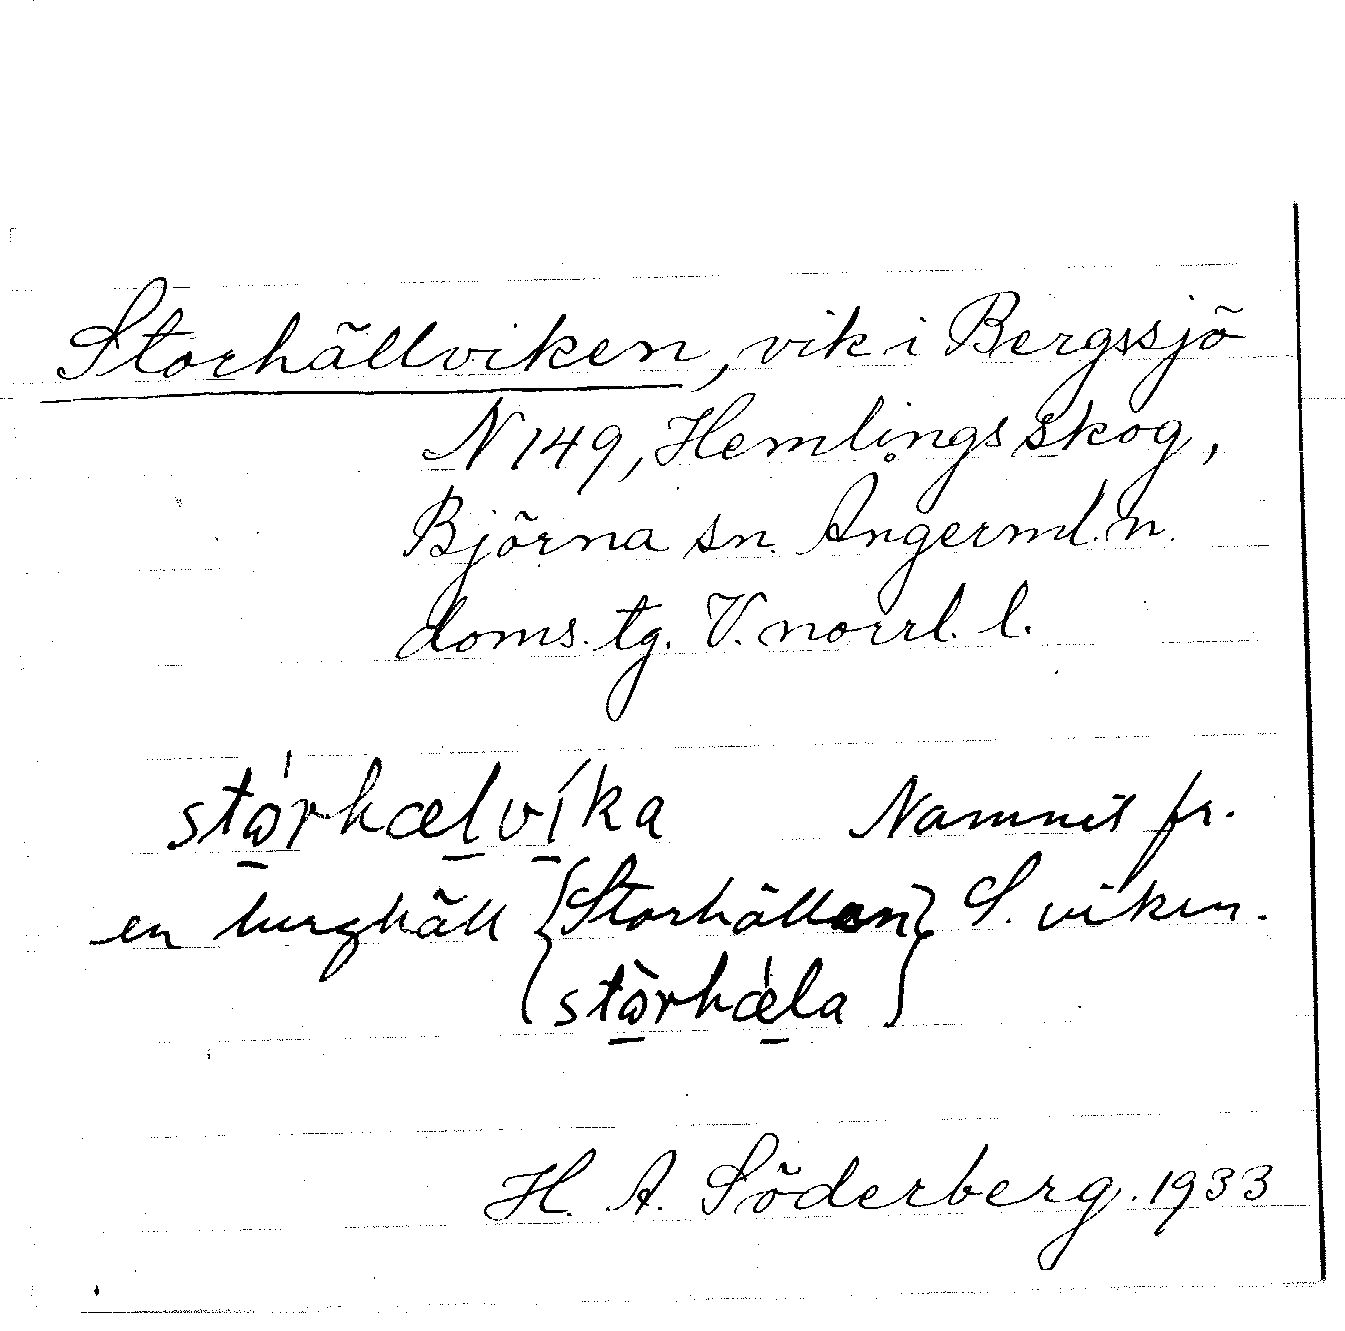 Storhällviken, vik i Bergssjö
N 149, Hemlings skog,
Björna sn. Ångerml. n.
doms. tg. V. norrl. l.
stɷ̀rhælvíka Namnet fr.
en berghäll {Storhällan} S. viken.
{stɷ̀rhæ̀la}
H. A. Söderberg. 1933